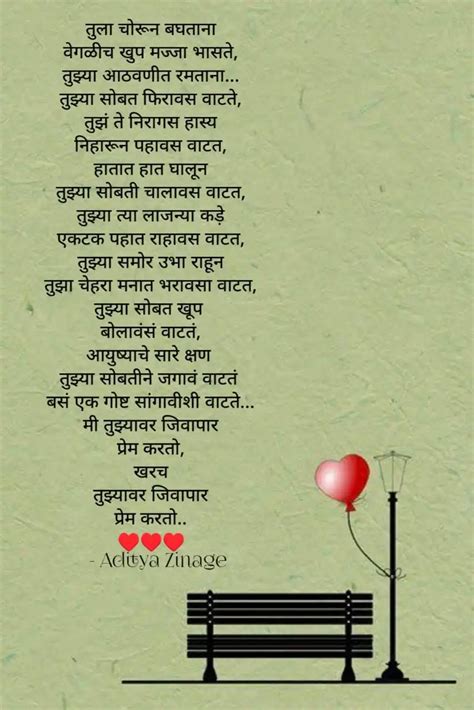 तुला चोरून बघताना
वेगळीच खुप मज्जा भासते,
तुझ्या आठवणीत रमताना...
तुझ्या सोबत फिरावस वाटते,
तुझं ते निरागस हास्य
निहारून पहावस वाटत,
हातात हात घालून
तुझ्या सोबती चालावस वाटत,
तुझ्या त्या लाजन्या कड़े
एकटक पहात राहावस वाटत,
तुझ्या समोर उभा राहून
तुझा चेहरा मनात भरावसा वाटत,
तुझ्या सोबत खूप
बोलावंसं वाटतं,
आयुष्याचे सारे क्षण
तुझ्या सोबतीने जगावं वाटतं
बसं एक गोष्ट सांगावीशी वाटते...
मी तुझ्यावर जिवापार
प्रेम करतो,
खरच
तुझ्यावर जिवापार
प्रेम करतो..
♥♥♥
- Aditya Zinage